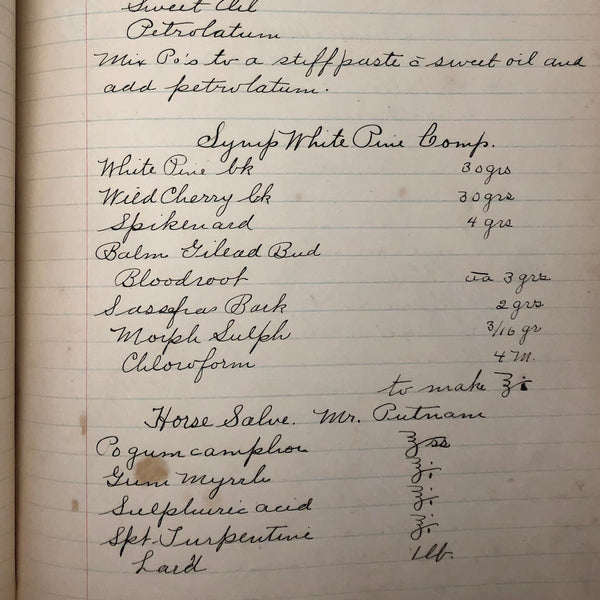 Sweet Oil
Petrolatum
Mix Po's to a stiff paste c̄ sweet oil and
add petrolatum.
Syrup White Pine Comp.
White Pine bk 30 grs
Wild Cherry bk 30 grs
Spikenard 4 grs
Balm Gilead Bud
Bloodroot āā 3 grs
Sassafras Bark 2 grs
Morph Sulph 3/16 gr
Chloroform 4 M.
to make ℥i
Horse Salve. Mr. Putnam
Po gum camphor ℥ss
Gum Myrrh ℥i
Sulphuric acid ℥i
Spt. Turpentine ℥i
Lard 1 lb.